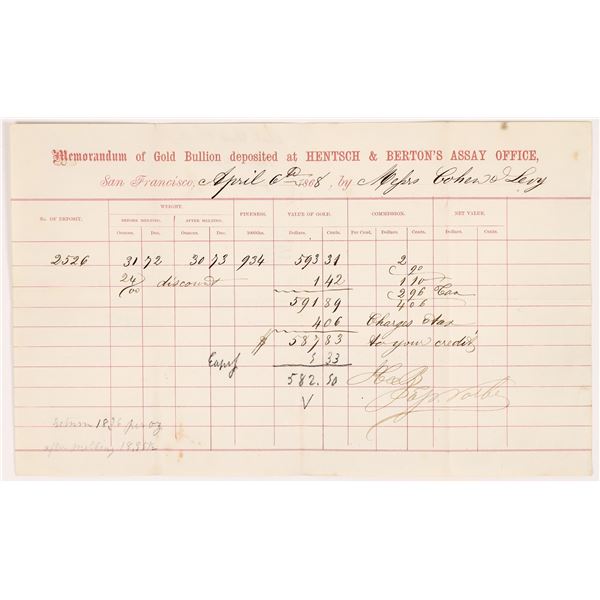 Memorandum of Gold Bullion deposited at HENTSCH & BERTON'S ASSAY OFFICE,
San Francisco, April 6th 1868, by Messrs Cohen & Levy
No. OF DEPOSIT. WEIGHT. FINENESS. VALUE OF GOLD. COMMISSION. NET VALUE.
BEFORE MELTING. AFTER MELTING.
Ounces. Dec. Ounces. Dec. 1000ths. Dollars. Cents. Per Cent. Dollars. Cents. Dollars. Cents.
2526 31 72 30 73 934 593 31 2
90
24/00 discount 1 42 1 10
591 89 2 96 Tax
4 06 4 06
Charges & tax
$ 587 83 to your credit
5 33
582.50 H & B
V
return 18,36 per oz
after melting